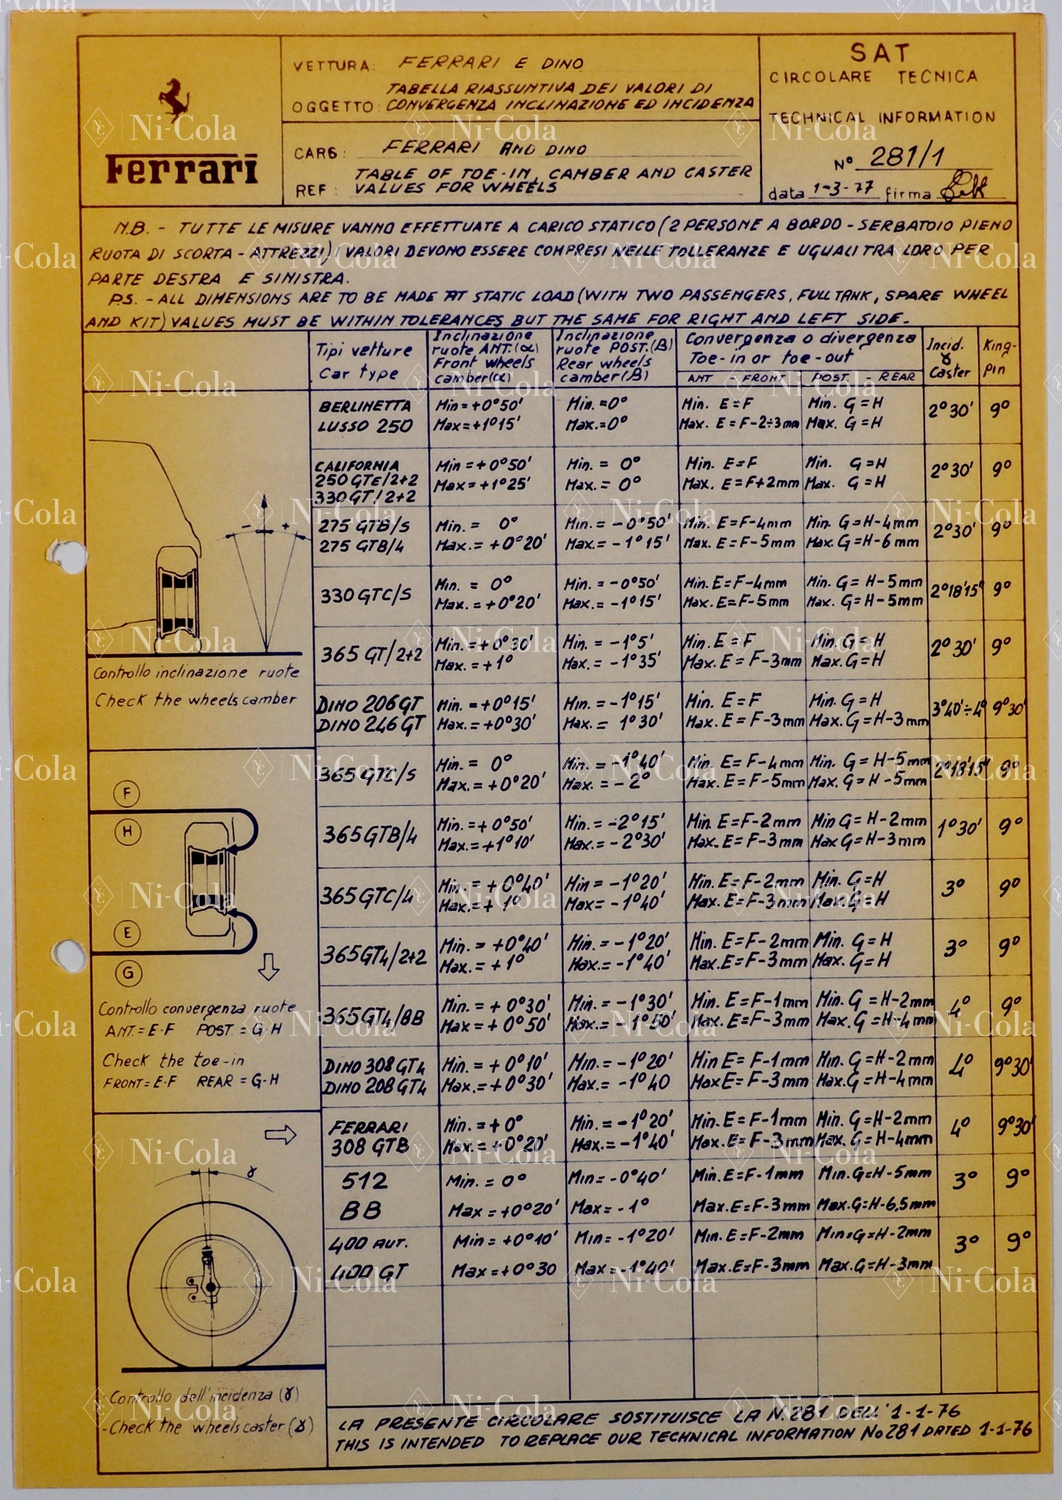 Ferrari
VETTURA: FERRARI E DINO
OGGETTO: TABELLA RIASSUNTIVA DEI VALORI DI
CONVERGENZA INCLINAZIONE ED INCIDENZA
CARS: FERRARI AND DINO
REF: TABLE OF TOE-IN, CAMBER AND CASTER
VALUES FOR WHEELS
SAT
CIRCOLARE TECNICA
TECHNICAL INFORMATION
N° 281/1
data 1-3-77 firma
N.B. - TUTTE LE MISURE VANNO EFFETTUATE A CARICO STATICO (2 PERSONE A BORDO - SERBATOIO PIENO
RUOTA DI SCORTA - ATTREZZI) VALORI DEVONO ESSERE COMPRESI NELLE TOLLERANZE E UGUALI TRA LORO PER
PARTE DESTRA E SINISTRA.
P.S. - ALL DIMENSIONS ARE TO BE MADE AT STATIC LOAD (WITH TWO PASSENGERS, FULL TANK, SPARE WHEEL
AND KIT) VALUES MUST BE WITHIN TOLERANCES BUT THE SAME FOR RIGHT AND LEFT SIDE.
Tipi vetture
Car type
Inclinazione
ruote ANT.(α)
Front wheels
camber(α)
Inclinazione
ruote POST.(β)
Rear wheels
camber(β)
Convergenza o divergenza
Toe-in or toe-out
ANT - FRONT
POST. - REAR
Incid.
γ
Caster
King-
pin
BERLINETTA Min=+0°50' Min.=0° Min. E=F Min. G=H 2°30' 9°
LUSSO 250 Max=+1°15' Max.=0° Max. E=F-2÷3mm Max. G=H
CALIFORNIA
250 GTE/2+2 Min=+0°50' Min.= 0° Min. E=F Min. G=H 2°30' 9°
330 GT/2+2 Max=+1°25' Max.= 0° Max. E=F+2mm Max. G=H
275 GTB/S Min.= 0° Min.= -0°50' Min. E=F-4mm Min. G=H-4mm 2°30' 9°
275 GTB/4 Max.=+0°20' Max.= -1°15' Max. E=F-5mm Max. G=H-6mm
330 GTC/S Min. = 0° Min. = -0°50' Min. E=F-4mm Min. G= H-5mm 2°18'15" 9°
Max.=+0°20' Max.= -1°15' Max. E=F-5mm Max. G=H-5mm
365 GT/2+2 Min.=+0°30' Min. = -1°5' Min. E=F Min. G=H 2°30' 9°
Max.=+1° Max. = -1°35' Max. E=F-3mm Max. G=H
DINO 206 GT Min.=+0°15' Min.= -1°15' Min. E=F Min. G=H 3°40'÷4° 9°30'
DINO 246 GT Max.=+0°30' Max.= 1°30' Max. E=F-3mm Max. G=H-3mm
365 GTC/S Min. = 0° Min. = -1°40' Min. E=F-4mm Min. G=H-5mm 2°18'15" 9°
Max.=+0°20' Max. = -2° Max. E=F-5mm Max. G=H-5mm
365 GTB/4 Min.=+0°50' Min. = -2°15' Min. E=F-2mm Min G=H-2mm 1°30' 9°
Max.=+1°10' Max. = -2°30' Max. E=F-3mm Max G=H-3mm
365 GTC/4 Min.=+0°40' Min = -1°20' Min. E=F-2mm Min. G=H 3° 9°
Max.=+1° Max= -1°40' Max. E=F-3mm Max. G=H
365 GT4/2+2 Min. = +0°40' Min. = -1°20' Min. E=F-2mm Min. G=H 3° 9°
Max. = +1° Max.= -1°40' Max. E=F-3mm Max. G=H
365 GT4/BB Min.=+0°30' Min.= -1°30' Min. E=F-1mm Min. G=H-2mm 4° 9°
Max=+0°50' Max.= -1°50' Max. E=F-3mm Max. G=H-4mm
DINO 308 GT4 Min.=+0°10' Min.= -1°20' Min E=F-1mm Min. G=H-2mm 4° 9°30'
DINO 208 GT4 Max.=+0°30' Max.= -1°40 Max E=F-3mm Max. G=H-4mm
FERRARI Min.=+0° Min.= -1°20' Min. E=F-1mm Min. G=H-2mm 4° 9°30'
308 GTB Max.=+0°20' Max.= -1°40' Max. E=F-3mm Max. G=H-4mm
512 Min. = 0° Min= -0°40' Min. E=F-1mm Min. G=H-5mm 3° 9°
BB Max =+0°20' Max= -1° Max. E=F-3mm Max. G=H-6,5mm
400 AUT. Min=+0°10' Min= -1°20' Min. E=F-2mm Min. G=H-2mm 3° 9°
400 GT Max=+0°30 Max= -1°40' Max. E=F-3mm Max. G=H-3mm
- +
Controllo inclinazione ruote
Check the wheels camber
F
H
E
G
Controllo convergenza ruote
ANT.=E-F POST = G-H
Check the toe-in
FRONT=E-F REAR = G-H
γ
-Controllo dell'incidenza (γ)
-Check the wheels caster (γ)
LA PRESENTE CIRCOLARE SOSTITUISCE LA N. 281 DELL' 1-1-76
THIS IS INTENDED TO REPLACE OUR TECHNICAL INFORMATION No 281 DATED 1-1-76
Ni-Cola